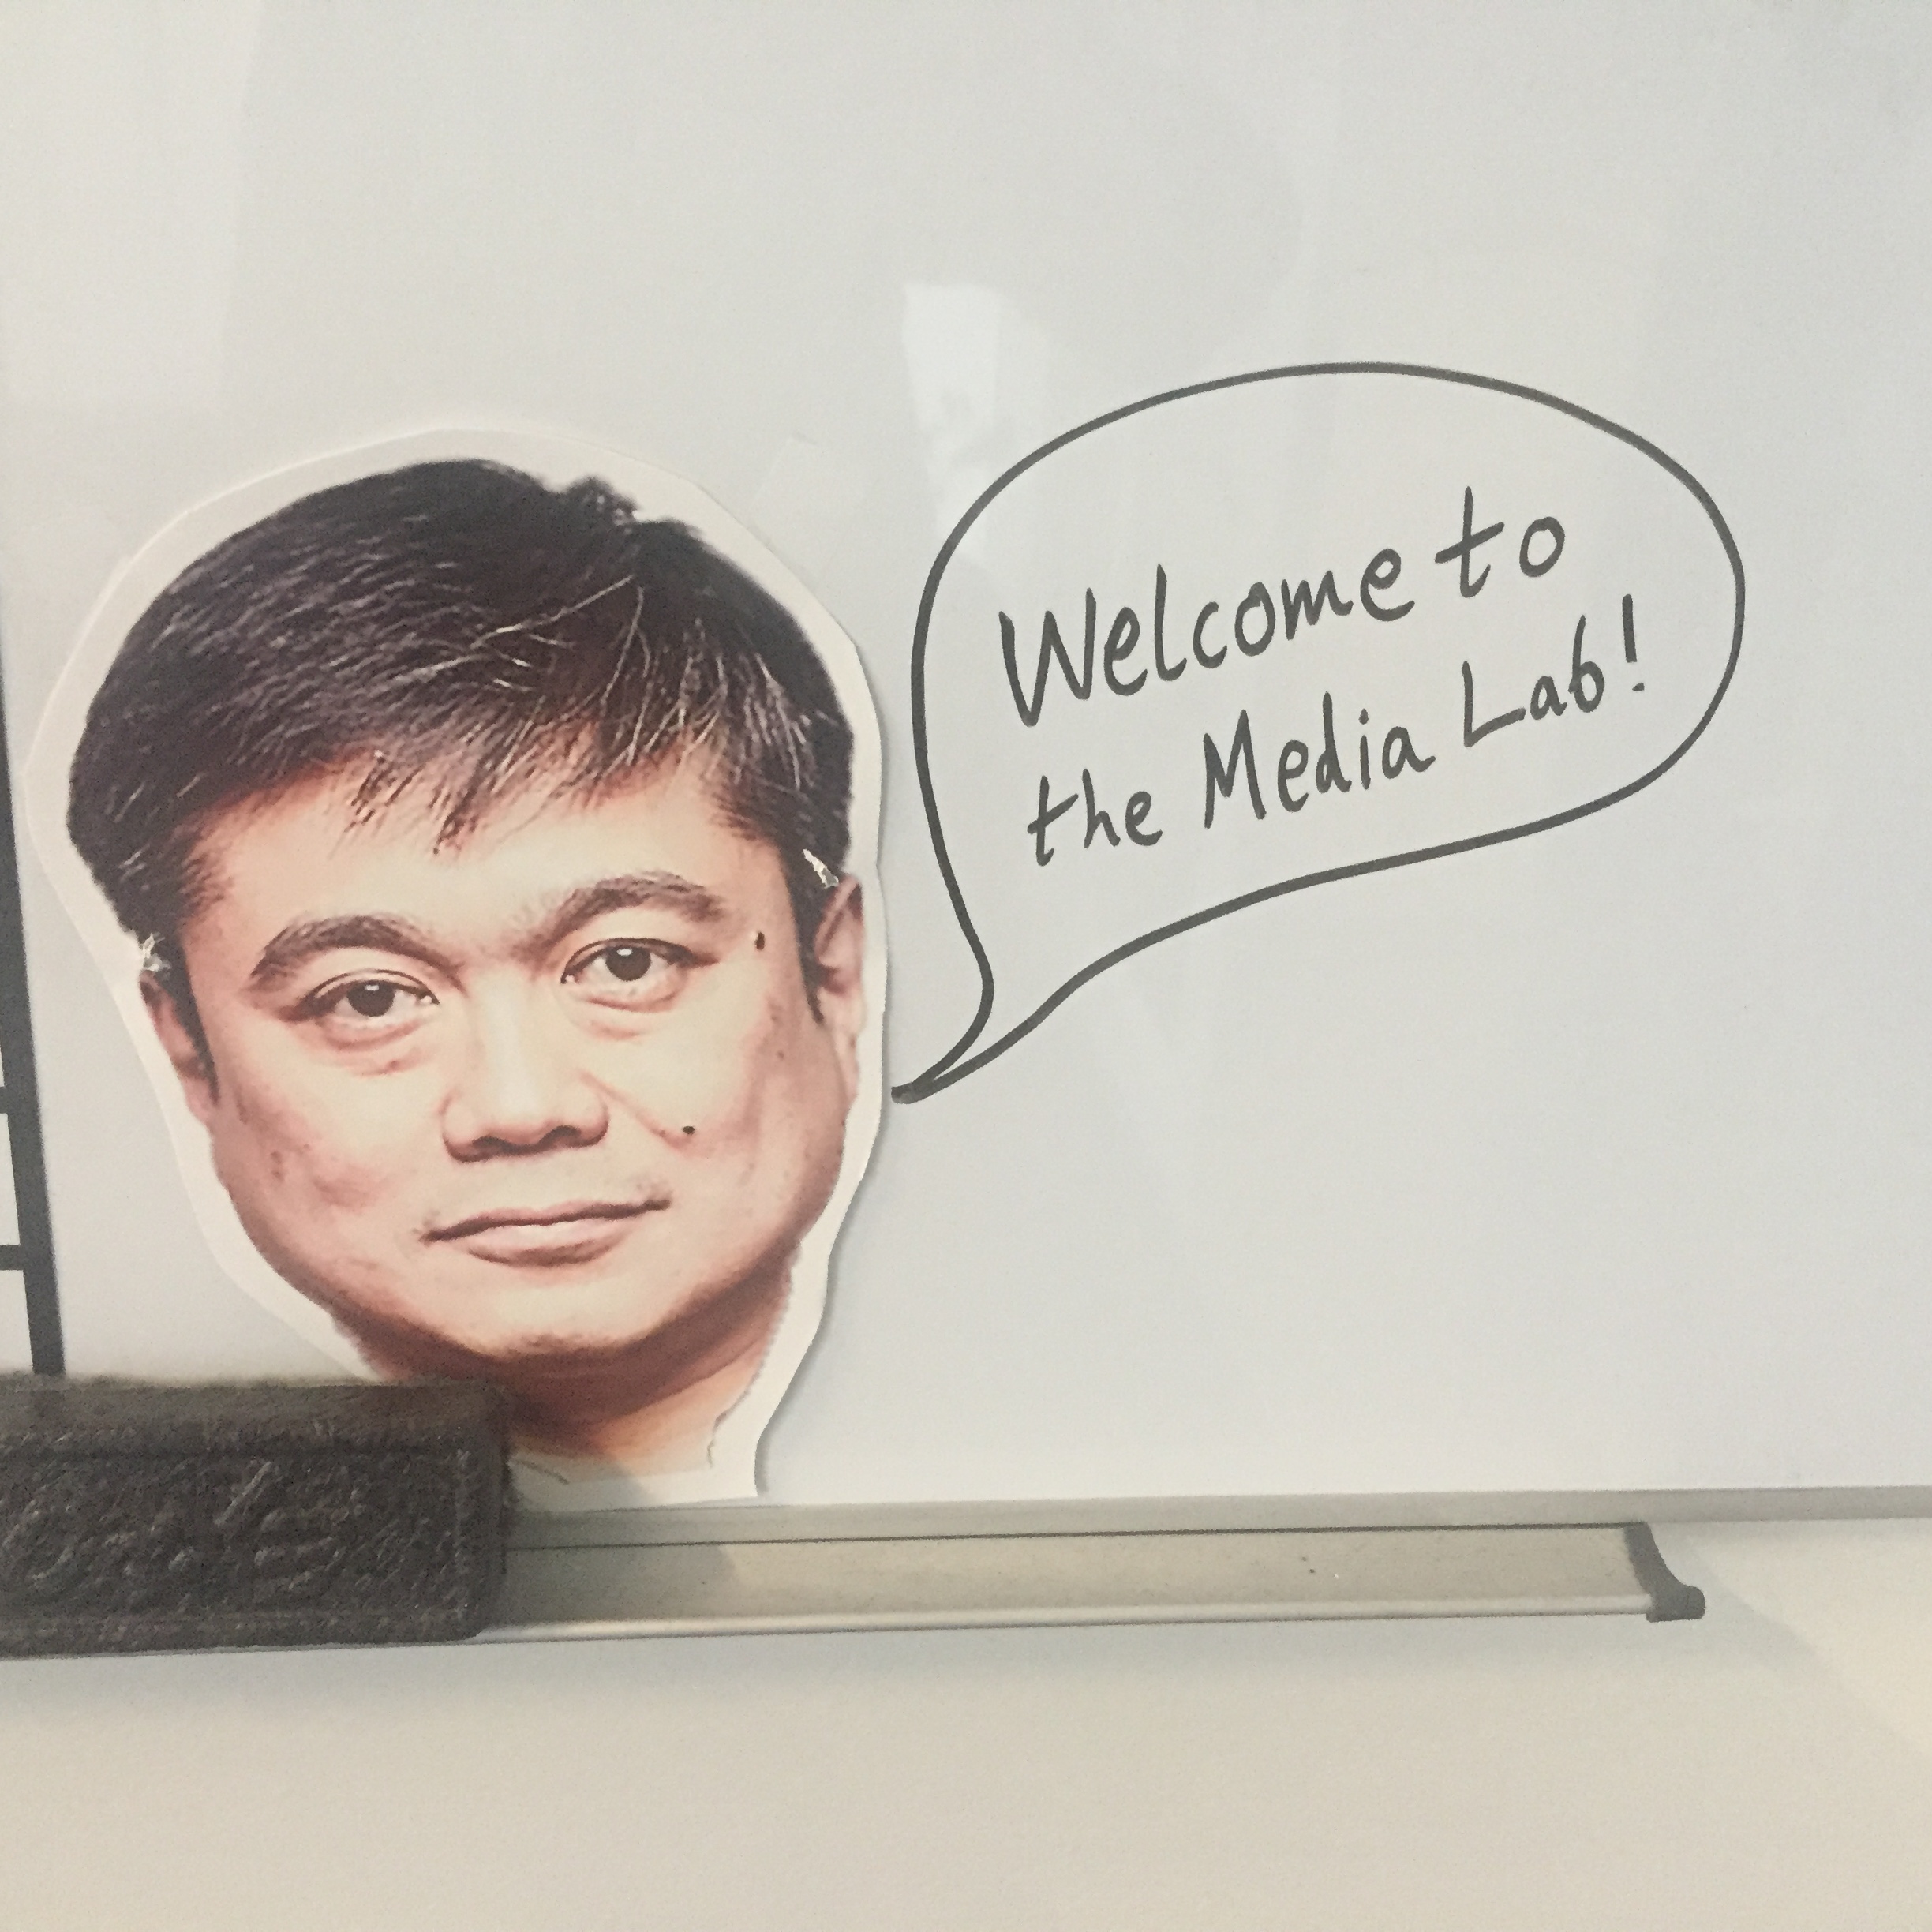 Welcome to
the Media Lab!